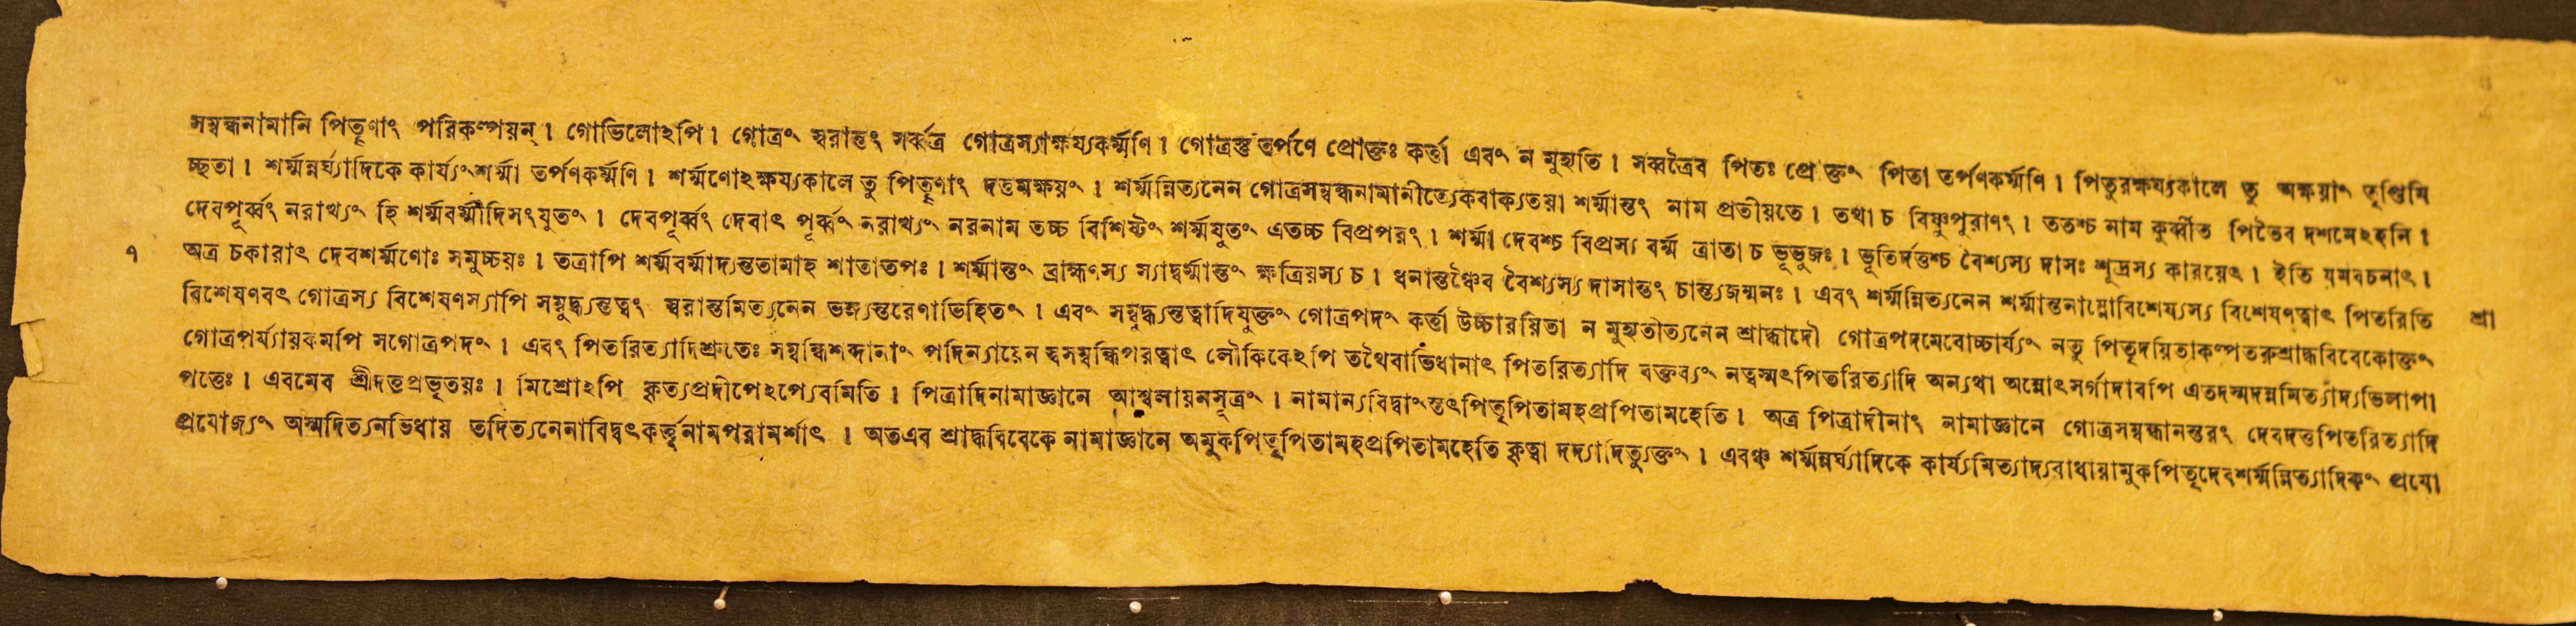 সম্বন্ধনামানি পিতৄণাং পরিকল্পয়ন্। গোভিলোঽপি। গোত্রং স্বরান্তং সর্ব্বত্র গোত্রস্যাক্ষয্যকর্ম্মণি। গোত্রস্তু তর্পণে প্রোক্তঃ কর্ত্তা এবং ন মুহ্যতি। সর্ব্বত্রৈব পিতঃ প্রোক্তং পিতা তর্পণকর্ম্মণি। পিতুরক্ষয্যকালে তু অক্ষয়াং তৃপ্তিমি
চ্ছতা। শর্ম্মন্নর্ঘ্যাদিকে কার্য্যং শর্ম্মা তর্পণকর্ম্মণি। শর্ম্মণোঽক্ষয্যকালে তু পিতৄণাং দত্তমক্ষয়ং। শর্ম্মন্নিত্যনেন গোত্রসম্বন্ধনামানীত্যেকবাক্যতয়া শর্ম্মান্তং নাম প্রতীয়তে। তথা চ বিষ্ণুপুরাণং। ততশ্চ নাম কুর্ব্বীত পিতৈব দশমেঽহনি।
দেবপূর্ব্বং নরাখ্যং হি শর্ম্মবর্ম্মাদিসংযুতং। দেবপূর্ব্বং দেবাৎ পূর্ব্বং নরাখ্যং নরনাম তচ্চ বিশিষ্টং শর্ম্মযুতং এতচ্চ বিপ্রপরং। শর্ম্মা দেবশ্চ বিপ্রস্য বর্ম্ম ত্রাতা চ ভূভুজঃ। ভূতির্দত্তশ্চ বৈশ্যস্য দাসঃ শূদ্রস্য কারয়েৎ। ইতি যমবচনাৎ।
১ অত্র চকারাৎ দেবশর্ম্মণোঃ সমুচ্চয়ঃ। তত্রাপি শর্ম্মবর্ম্মাদ্যন্ততামাহ শাতাতপঃ। শর্ম্মান্তং ব্রাহ্মণস্য স্যাদ্বর্ম্মান্তং ক্ষত্রিয়স্য চ। ধনান্তঞ্চৈব বৈশ্যস্য দাসান্তং চান্ত্যজন্মনঃ। এবং শর্ম্মন্নিত্যনেন শর্ম্মান্তনাম্নোবিশেষ্যস্য বিশেষণত্বাৎ পিতরিতি শ্রা
বিশেষণবৎ গোত্রস্য বিশেষণস্যাপি সম্বুদ্ধ্যন্তত্বং স্বরান্তমিত্যনেন ভঙ্গ্যন্তরেণাভিহিতং। এবং সম্বুদ্ধ্যন্তত্বাদিযুক্তং গোত্রপদং কর্ত্তা উচ্চারয়িতা ন মুহ্যতীত্যনেন শ্রাদ্ধাদৌ গোত্রপদমেবোচ্চার্য্যং নতু পিতৃদয়িতাকল্পতরুশ্রাদ্ধবিবেকোক্তং
গোত্রপর্য্যায়কমপি সগোত্রপদং। এবং পিতরিত্যাদিশ্রুতেঃ সম্বন্ধিশব্দানাং পদিন্যায়েন স্বসম্বন্ধিপরত্বাৎ লৌকিকেঽপি তথৈবাভিধানাৎ পিতরিত্যাদি বক্তব্যং নত্বস্মৎপিতরিত্যাদি অন্যথা অন্নোৎসর্গাদাবপি এতদস্মদন্নমিত্যাদ্যভিলাপা
পত্তেঃ। এবমেব শ্রীদত্তপ্রভৃতয়ঃ। মিশ্রোঽপি কৃত্যপ্রদীপেঽপ্যেবমিতি। পিত্রাদিনামাজ্ঞানে আশ্বলায়নসূত্রং। নামান্যবিদ্বাংস্তৎপিতৃপিতামহপ্রপিতামহেতি। অত্র পিত্রাদীনাং নামাজ্ঞানে গোত্রসম্বন্ধানন্তরং দেবদত্তপিতরিত্যাদি
প্রযোজ্যং অস্মদিত্যনভিধায় তদিত্যনেনাবিদ্বৎকর্ত্তৃনামপরামর্শাৎ। অতএব শ্রাদ্ধবিবেকে নামাজ্ঞানে অমুকপিতৃপিতামহপ্রপিতামহেতি কৃত্বা দদ্যাদিত্যুক্তং। এবঞ্চ শর্ম্মন্নর্ঘ্যাদিকে কার্য্যমিত্যাদ্যবাধায়ামুকপিতৃদেবশর্ম্মন্নিত্যাদিকং প্রযো